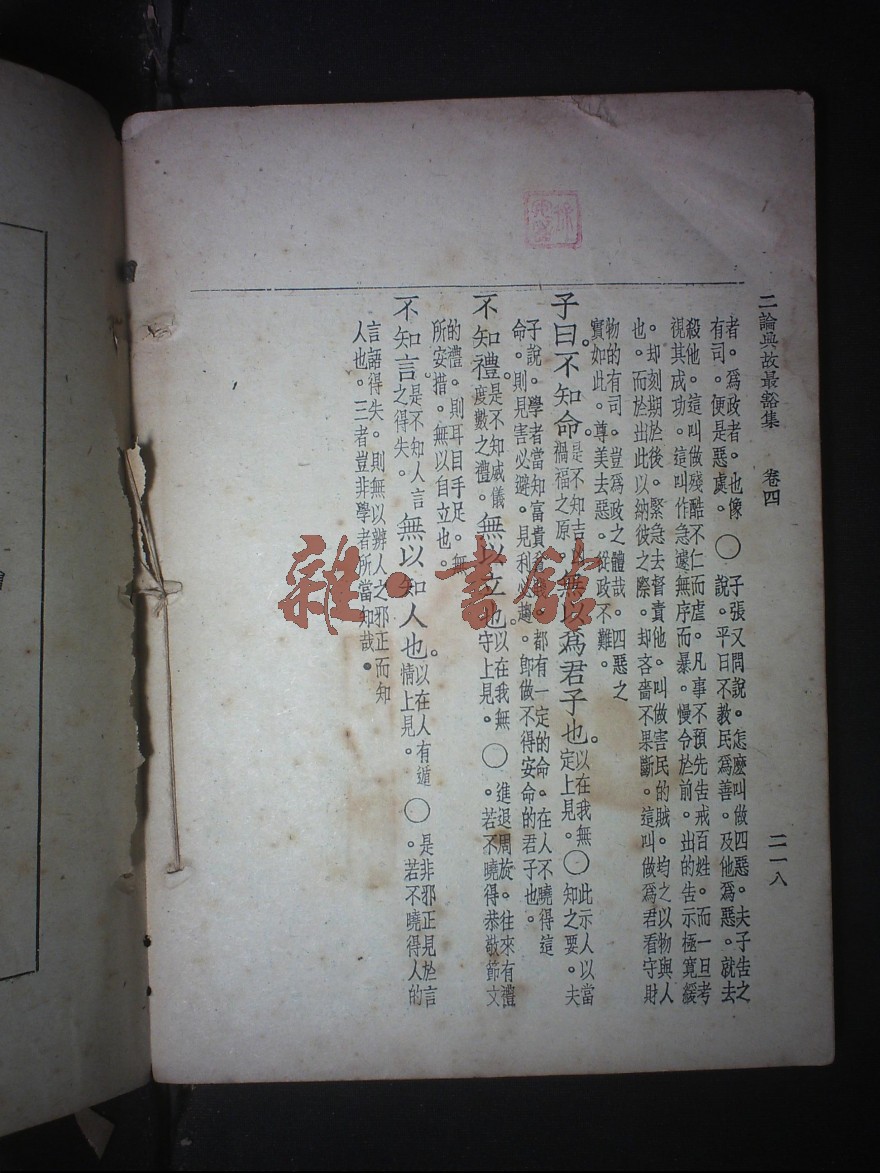 二論典故最豁集　卷四　二一八
者。爲政者。也像
有司。便是惡處。
◯
子張又問說。怎麽叫做四惡。夫子告之
說。平日不教民爲善。及他爲惡。就去
殺他。這叫做殘酷不仁而虐。凡事不預先告戒百姓。而一旦考
視其成功。這叫作急遽無序而暴。慢令於前。出的告示極寬緩
。却刻期於後。緊急去督責他。叫做害民的賊。均之以物與人
也。而於出此以納彼之際。却吝嗇不果斷。這叫做爲君看守財
物的有司。豈爲政之體哉。四惡之
實如此。尊美去惡。從政不難。
子曰。不知命。
是不知吉凶
禍福之原。
無以爲君子也。
以在我無
定上見。
◯
此示人以當
知之要。夫
子說。學者當知富貴貧賤。都有一定的命。在人不曉得這
命。則見害必避。見利必趨。卽做不得安命的君子也。
不知禮。
是不知威儀
度數之禮。
無以立也。
以在我無
守上見。
◯
進退周旋。往來有禮
。若不曉得恭敬節文
的禮。則耳目手足。無
所安措。無以自立也。
不知言。
是不知人言
之得失。
無以知人也。
以在人有遁
情上見。
◯
是非邪正見於言
。若不曉得人的
言語得失。則無以辨人之邪正而知
人也。三者豈非學者所當知哉。
雜·書館